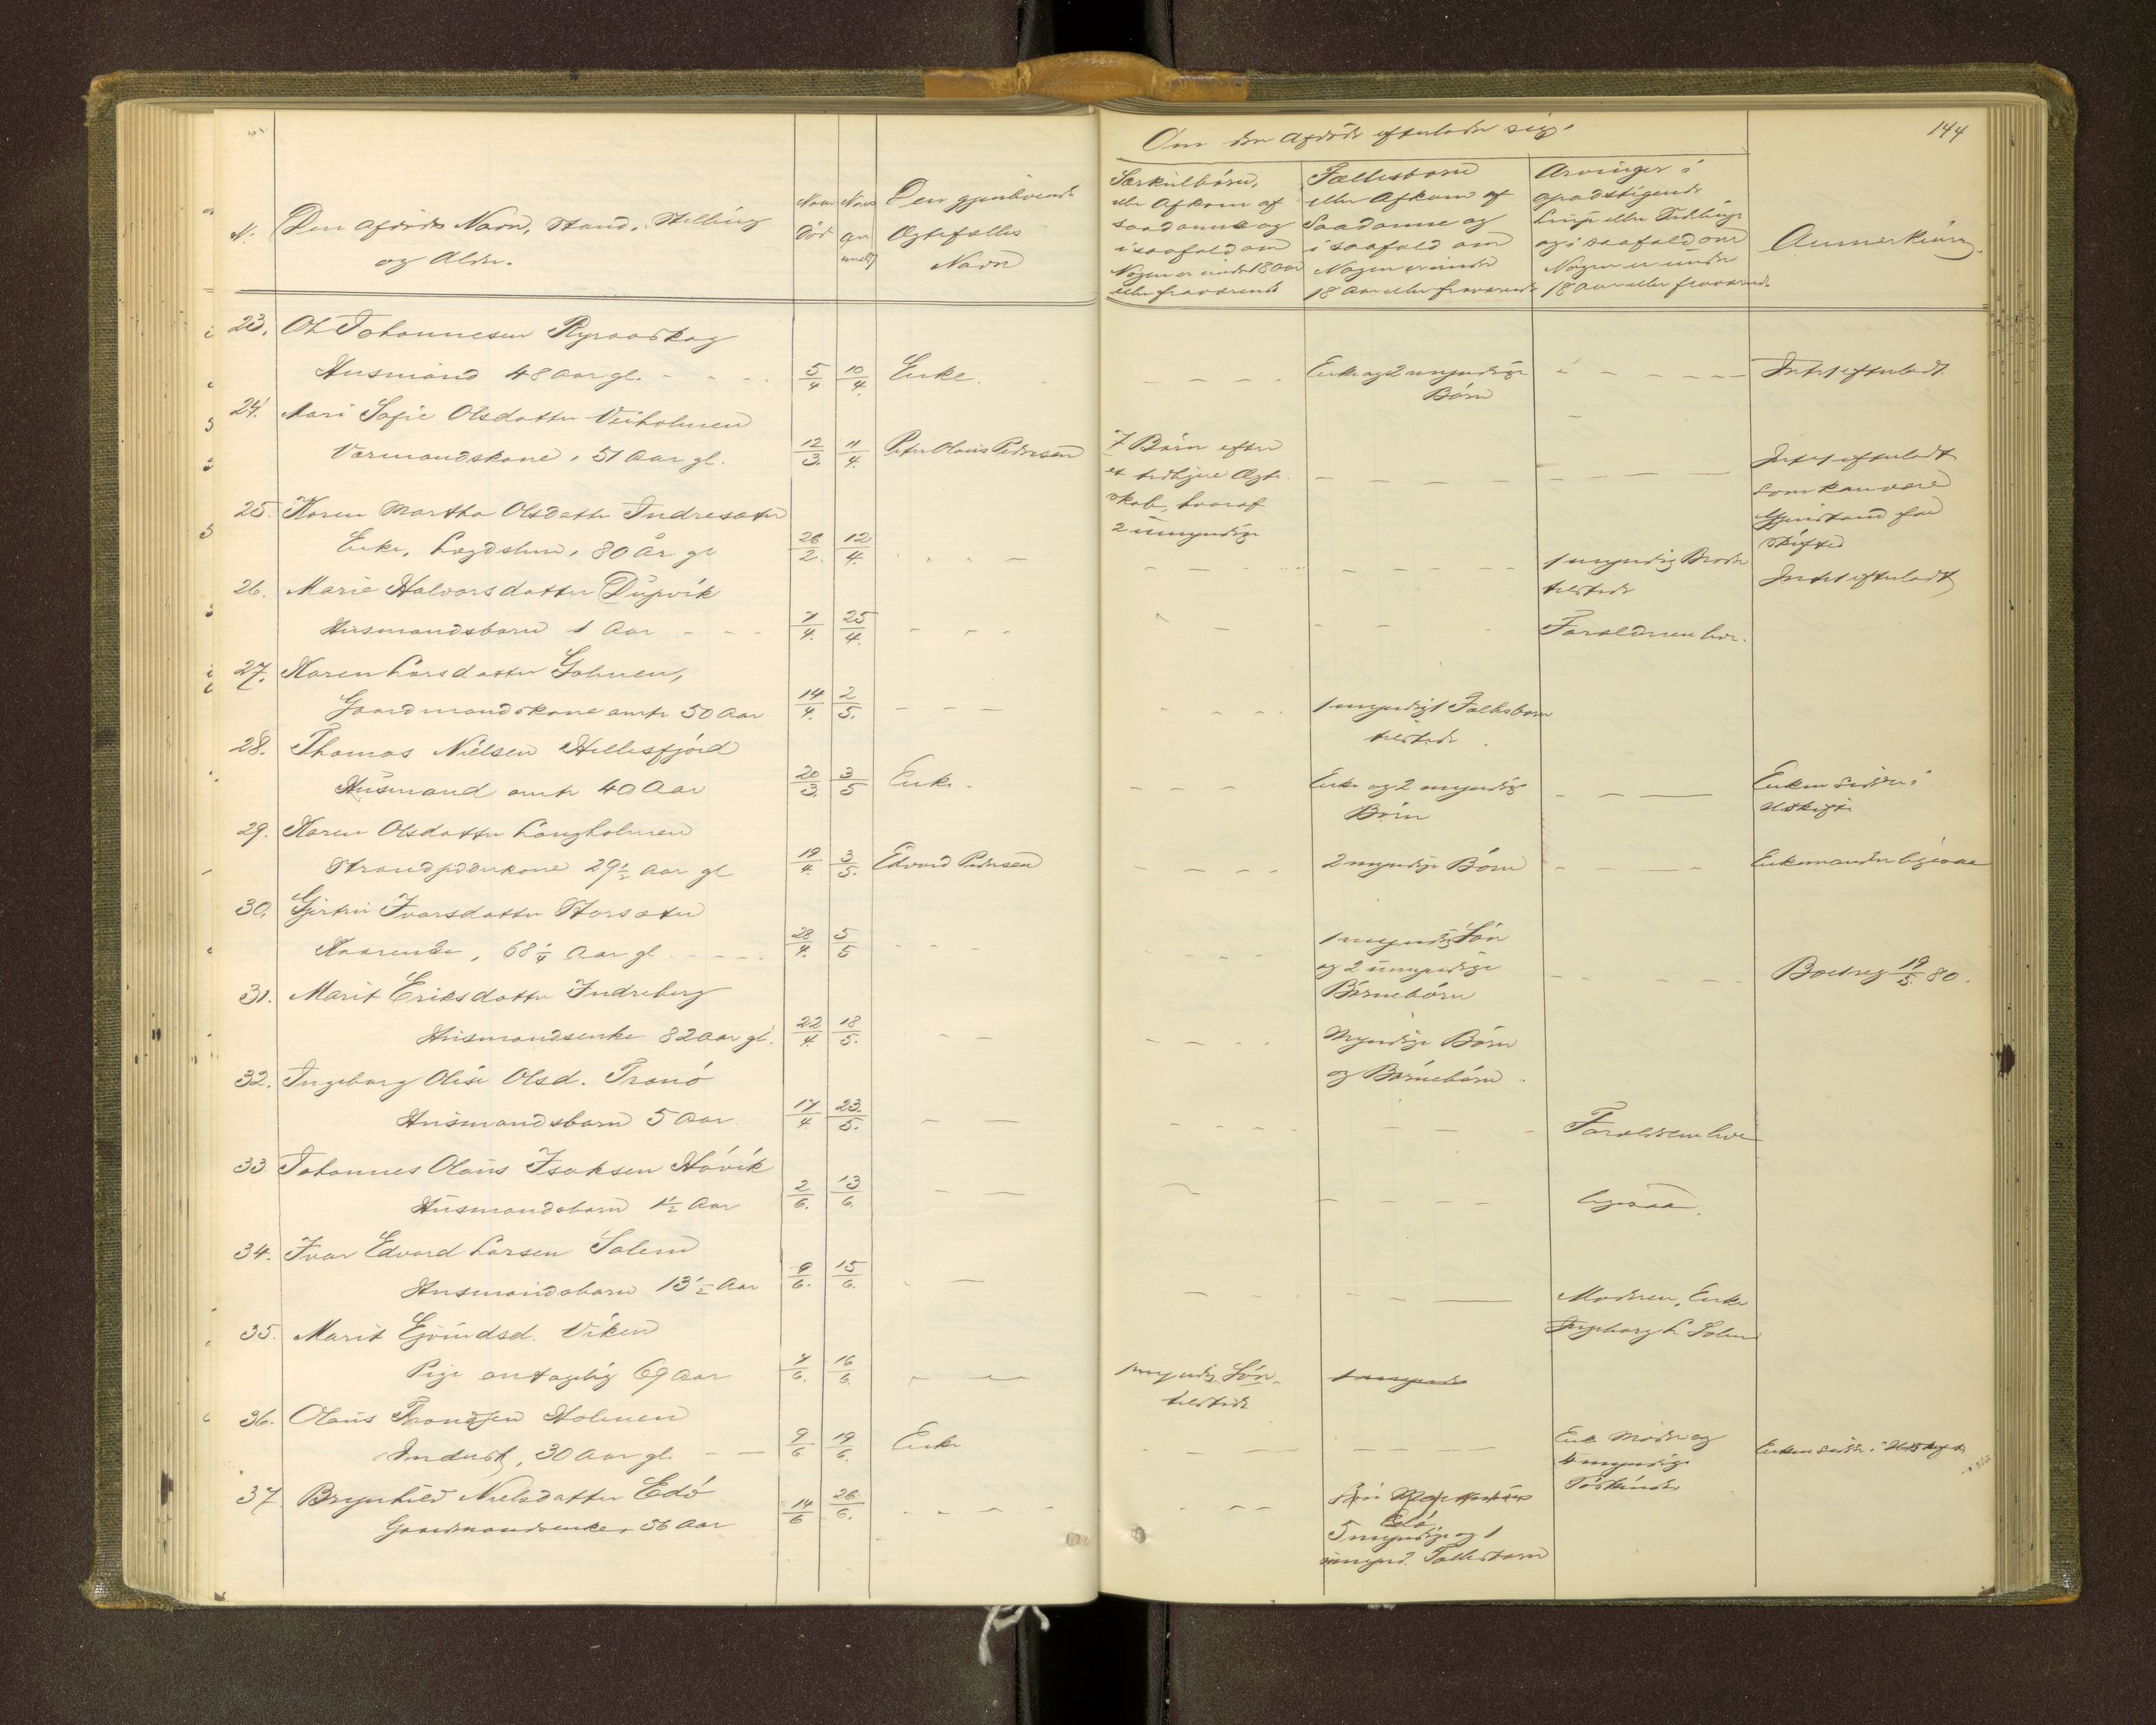 144
Om den Afdøde efterlader sig:
N. Den Afdødes Navn, Stand, Stilling
og Alder.
Naar Død
Naar anmeldt
Den gjenlevende
Ægtefælles
Navn
Særkulbörn,
eller Afkom af
saadanne og
i saafald om
Nogen er under 18 Aar
eller fraværende
Fællesbörn
eller Afkom af
Saadanne og
i saafald om
Nogen er under
18 Aar eller fraværende
Arvinger i
opadstigende
Linje eller Sidelinje
og i saafald om
Nogen er under
18 Aar eller fraværende
Anmerkning.
23. Ole Johannesen
Husmand 48 Aar gl. 5/4 10/4 Enke. Enke og 2 umyndige Intet efterladt
Börn
24. Mari Sofie Olsdatter Veiholmen
Værmandskone, 51 Aar gl. 12/3. 11/4. Peter Olaus Pedersen 7 Börn efter Intet efterladt
et tidligere Ægte-
skab, hvoraf
2 umyndige
som kan være
Gjenstand for
Skifte
25. Karen Martha Olsdatter Indresæter
Enke, Lægdslem, 80 År gl 26/2. 12/4. 1 myndig Broder Intet efterladt
tilstede
26. Marie Halvorsdatter Düpvik
Husmandsbarn 1 Aar 7/4. 25/4. Forældrene lever.
27. Karen Larsdatter
Gaardmandskone omtr 50 Aar 14/4. 2/5. 1 myndigt Fællesbarn
tilstede
28. Thomas Nielsen Hellesfjörd
Husmand omtr 40 Aar 20/3. 3/5 Enke. Enke og 2 umyndige Enken sidder i
Börn Uskifte
29. Karen Olsdatter Langholmen
Strandsidderkone 29½ Aar gl 19/4. 3/5. Edvard Pedersen 2 umyndige Börn Enkemanden ligesaa
30. Gjertrü Ivarsdatter Storsæter
Kaarenke, 68¼ Aar gl 28/4. 5/5 1 myndig Sön
og 2 umyndige Boet reg 19/5. 80.
Börnebörn
31. Marit Eriksdatter Indreberg
Husmandsenke 82 Aar gl. 22/4. 18/5. Myndige Börn
og Börnebörn
32. Ingeborg Olise Olsd. Tranö
Husmandsbarn 5 Aar 17/4. 23./5. Forældrene lever
33 Johannes Olaus Isaksen Håvik
Husmandsbarn 1½ Aar 2/6. 13/6. ligesaa.
34. Ivar Edvard Larsen Solem
Husmandsbarn 13½ Aar 9/6. 15/6. Moderen, Enke
Ingeborg L Solem
35. Marit Ejvindsd. Viken
Pige antagelig 69 Aar 7/6. 16/6. 1 myndig Sön
tilstede
36. Olaus Trondsen Holmen
Inderst, 30 Aar gl. 9/6. 19/6. Enke Enke, Moder og Enken sidder i Uskifte
4 myndige
Söskende
37. Brynhild Nielsdatter Edö
Gaardmandsenke, 56 Aar 14/6 26/6.
Edö
5 myndige og 1
umynd. Fællesbarn